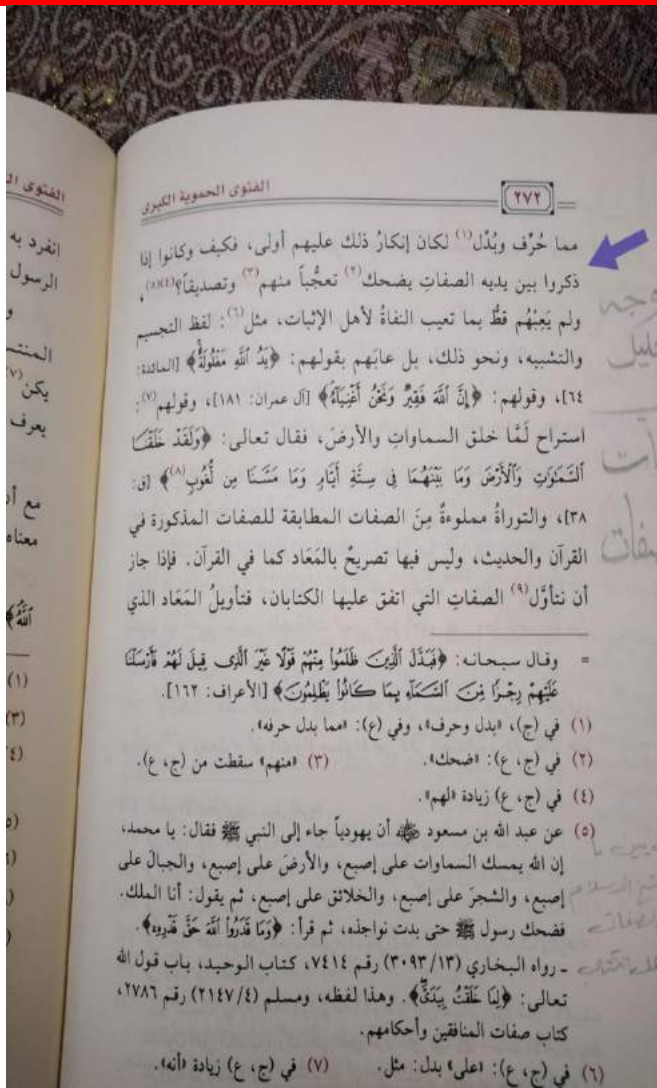 الفتوى الحموية الكبرى
٢٧٢
مما حُرِّف وبُدِّل(١) لكان إنكارُ ذلك عليهم أولى، فكيف وكانوا إذا
ذكروا بين يديه الصفاتِ يضحك(٢) تعجُّباً منهم(٣) وتصديقاً؟(٤)(٥)،
ولم يَعِبْهُم قطُّ بما تعيب النفاةُ لأهل الإثبات، مثل(٦): لفظ التجسيم
والتشبيه، ونحو ذلك، بل عابَهم بقولهم: ﴿يَدُ ٱللَّهِ مَغْلُولَةٌ﴾ [المائدة:
٦٤]، وقولهم: ﴿إِنَّ ٱللَّهَ فَقِيرٌ وَنَحْنُ أَغْنِيَآءُ﴾ [آل عمران: ١٨١]، وقولهم(٧):
استراح لَمَّا خلق السماواتِ والأرضَ، فقال تعالى: ﴿وَلَقَدْ خَلَقْنَا
ٱلسَّمَٰوَٰتِ وَٱلْأَرْضَ وَمَا بَيْنَهُمَا فِى سِتَّةِ أَيَّامٍ وَمَا مَسَّنَا مِن لُّغُوبٍ(٨)﴾ [ق:
٣٨]، والتوراةُ مملوءةٌ مِنَ الصفات المطابقة للصفات المذكورة في
القرآن والحديث، وليس فيها تصريحٌ بالمَعَاد كما في القرآن. فإذا جاز
أن نتأوَّل(٩) الصفاتِ التي اتفق عليها الكتابان، فتأويلُ المَعَاد الذي
= وقال سبحانه: ﴿فَبَدَّلَ ٱلَّذِينَ ظَلَمُوا۟ مِنْهُمْ قَوْلًا غَيْرَ ٱلَّذِى قِيلَ لَهُمْ فَأَرْسَلْنَا
عَلَيْهِمْ رِجْزًا مِّنَ ٱلسَّمَآءِ بِمَا كَانُوا۟ يَظْلِمُونَ﴾ [الأعراف: ١٦٢].
(١) في (ج)، «بدل وحرف»، وفي (ع): «مما بدل حرفه».
(٢) في (ج، ع): «ضحك». (٣) «منهم» سقطت من (ج، ع).
(٤) في (ج، ع) زيادة «لهم».
(٥) عن عبد الله بن مسعود رضي الله عنه أن يهودياً جاء إلى النبي ﷺ فقال: يا محمد،
إن الله يمسك السماوات على إصبع، والأرضَ على إصبع، والجبالَ على
إصبع، والشجرَ على إصبع، والخلائق على إصبع، ثم يقول: أنا الملك.
فضحك رسول ﷺ حتى بدت نواجذه، ثم قرأ: ﴿وَمَا قَدَرُوا۟ ٱللَّهَ حَقَّ قَدْرِهِ﴾.
ـ رواه البخاري (٣٠٩٣/١٣) رقم ٧٤١٤، كتاب الوحيد، باب قول الله
تعالى: ﴿لِمَا خَلَقْتُ بِيَدَىَّ﴾. وهذا لفظه، ومسلم (٢١٤٧/٤) رقم ٢٧٨٦،
كتاب صفات المنافقين وأحكامهم.
(٦) في (ج، ع): «على» بدل: مثل. (٧) في (ج، ع) زيادة «أنه».
الفتوى
انفرد به
الرسول
يكن(٧)
يعرف
مع
(١)
(٣)